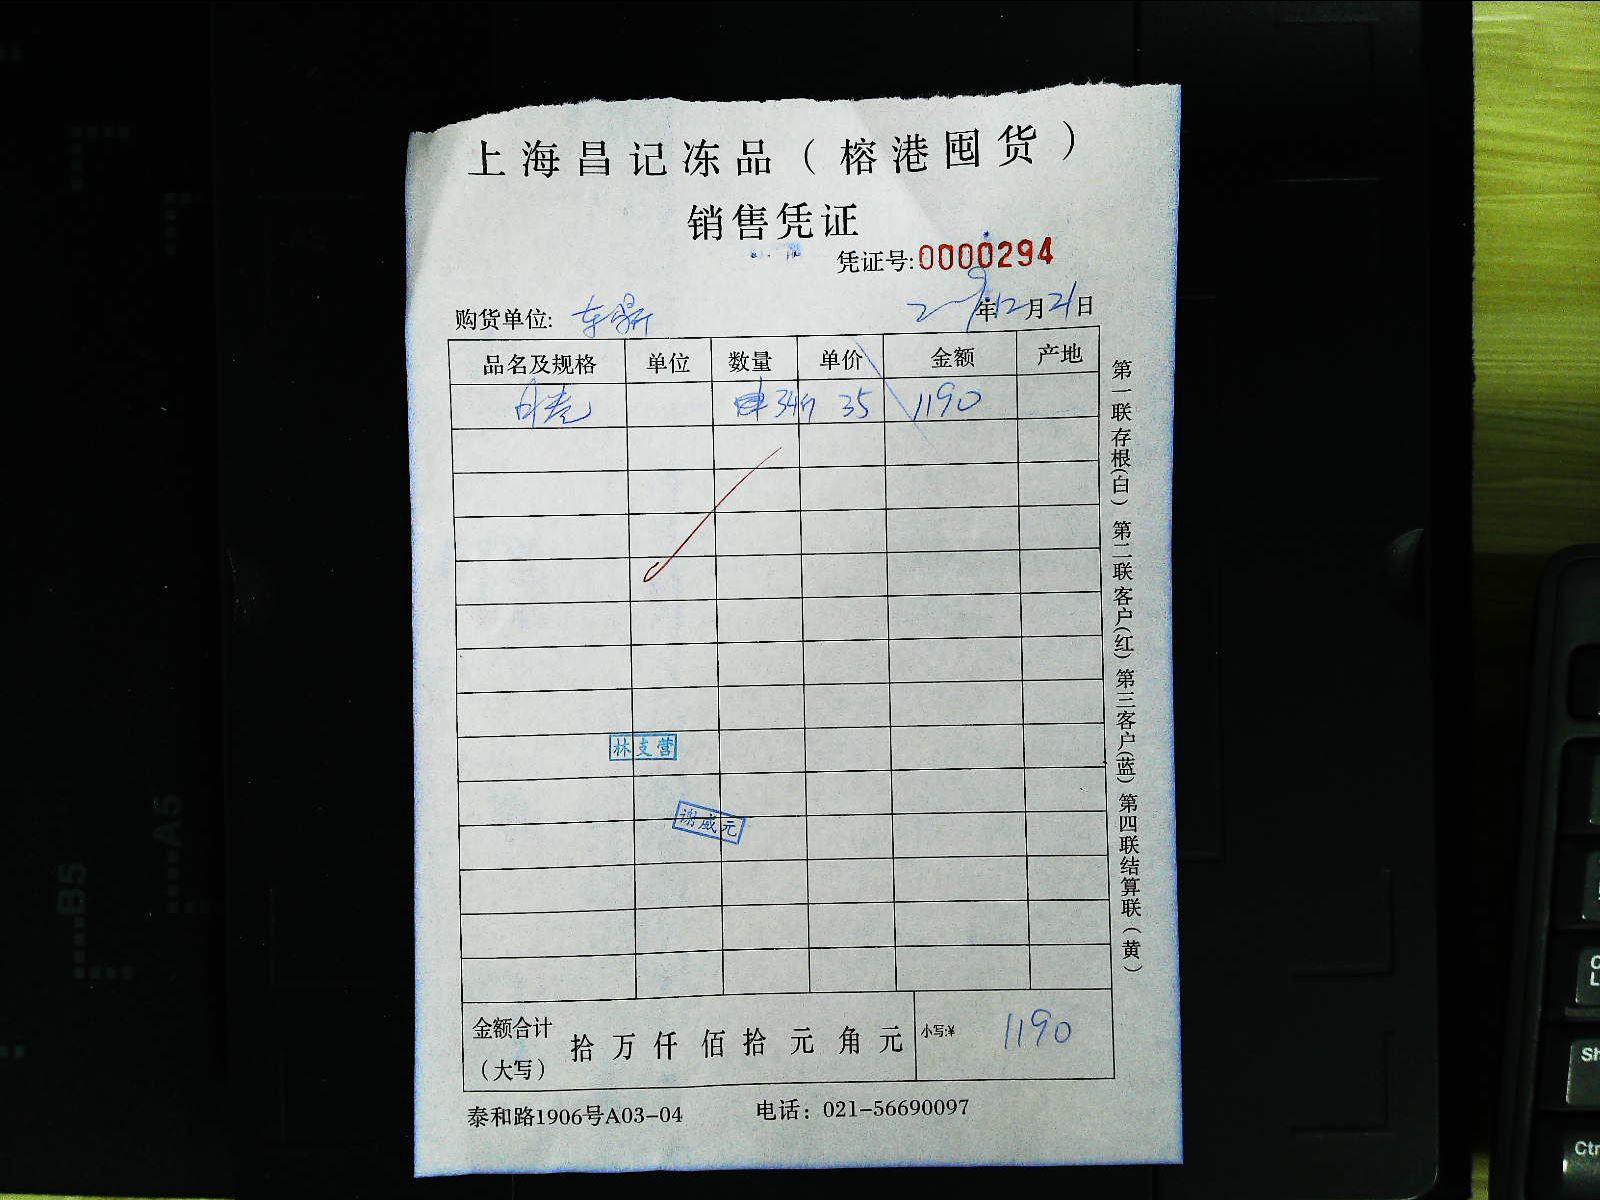 上海昌记冻品（榕港囤货）
销售凭证
凭证号:0000294
购货单位: 年12月21日
品名及规格 单位 数量 单价 金额 产地
34斤 35 1190
林支营
谢威元
金额合计（大写） 拾 万 仟 佰 拾 元 角 元 小写:¥ 1190
泰和路1906号A03-04 电话：021-56690097
第一联存根（白）第二联客户（红）第三客户（蓝）第四联结算联（黄）
B5
A5
Sh
Ctr